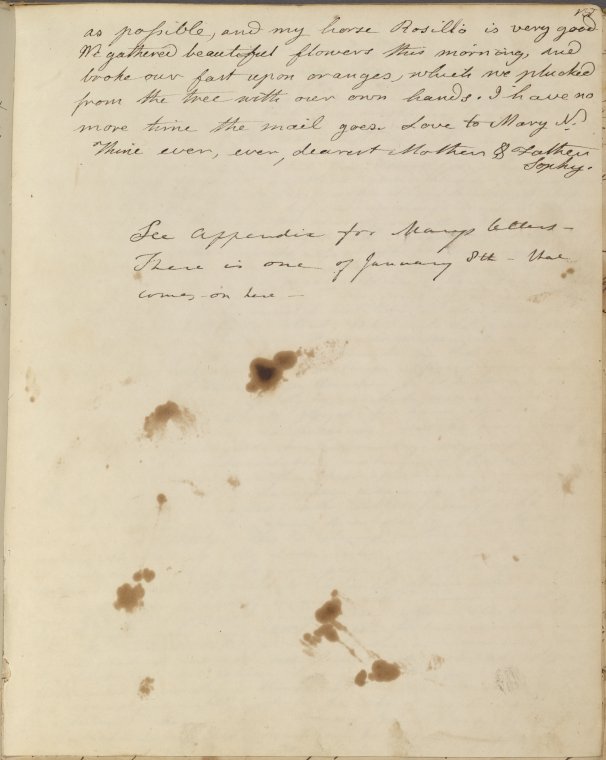 as possible, and my horse Rosillo is very good
We gathered beautiful flowers this morning, and
broke our fast upon oranges, which we plucked
from the tree with our own hands. I have no
more time the mail goes. Love to Mary N.
Thine ever, ever, dearest Mother & Father
Sophy.
See Appendix for Marys letters –
There is one of January 8th – that
comes – on here –